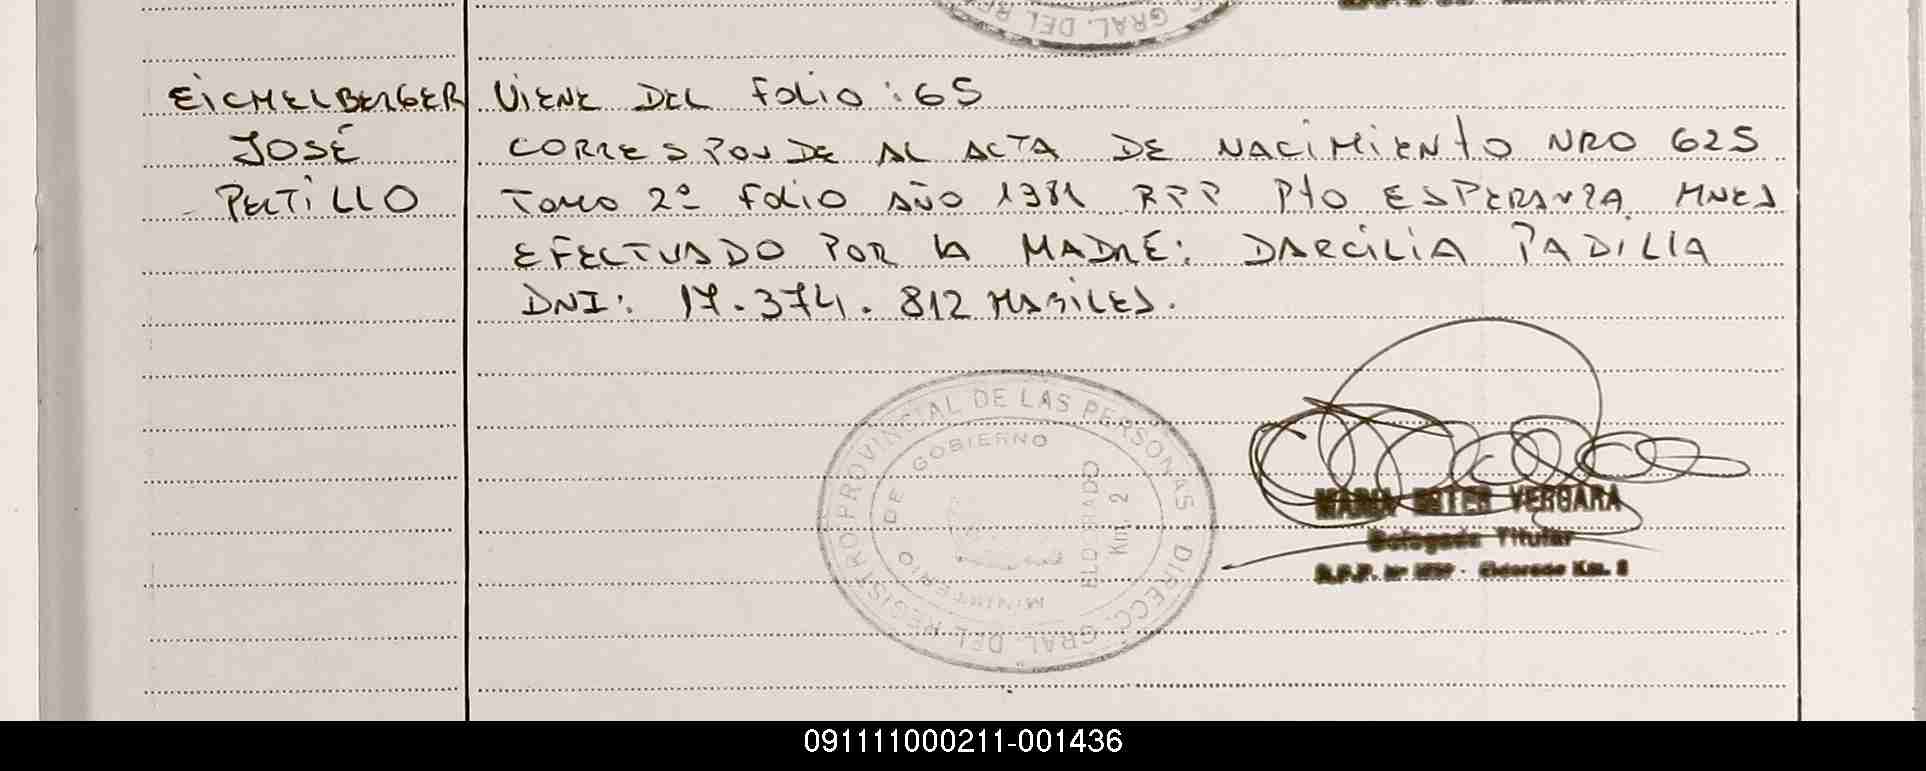 GRAL. DEL RE
EICHELBERGER VIENE DEL FOLIO: 65
JOSÉ CORRESPONDE AL ACTA DE NACIMIENTO NRO 625
TOMO 2º FOLIO AÑO 1981 RPP PTO ESPERANZA MNES
EFECTUADO POR LA MADRE: DARCILIA PADILLA
DNI: 17.374.812
REGISTRO PROVINCIAL DE LAS PERSONAS DIRECC. GRAL. DEL
MINISTERIO DE GOBIERNO
ELDORADO
Km. 2
MARIA ESTER VERGARA
Delegada Titular
Eldorado Km. 2
091111000211-001436